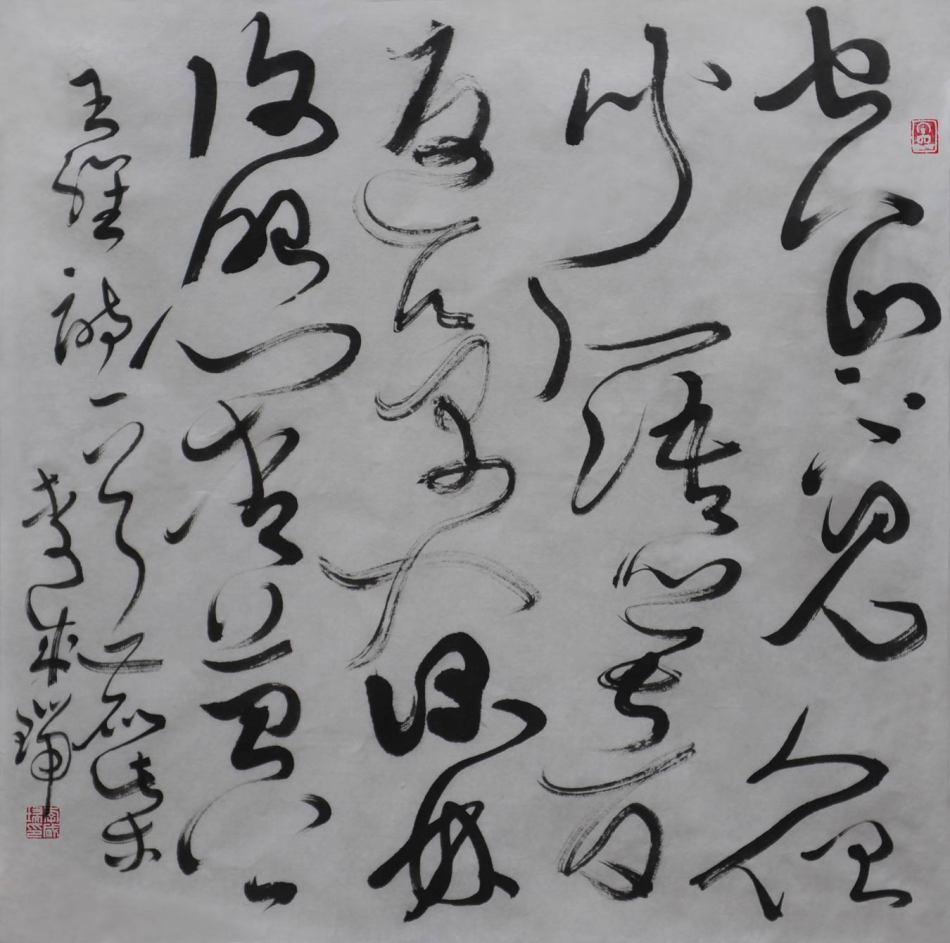 空山不見人但
聞人語響
返景入深林
復照青苔上
王維詩一首
李成瑞